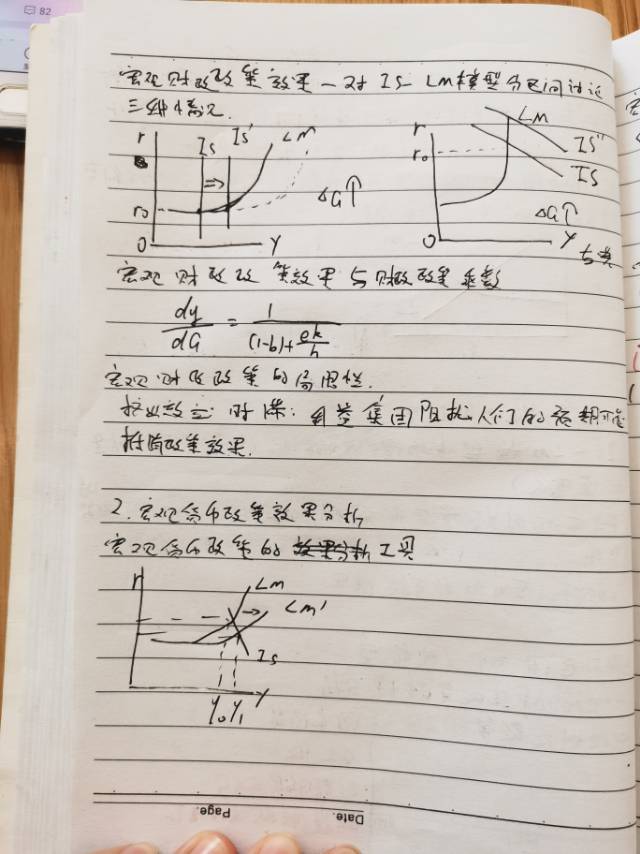 82
宏观财政政策效果—对IS LM模型分区间讨论
三种情况.
r IS IS' LM
r₀ ⇒ ΔG↑
0 Y
r LM
r₀ IS''
IS
ΔG↑
0 Y
宏观财政政策效果与财政政策乘数
dy/dG = 1/((1-b)+ek/h)
宏观财政政策的局限性.
挤出效应 时滞: 利益集团阻挠.人们的预期可能
抵消政策效果.
2.宏观货币政策效果分析
宏观货币政策的效果分析工具
r LM
→ LM'
IS
Y₀ Y₁ Y
Date. Page.